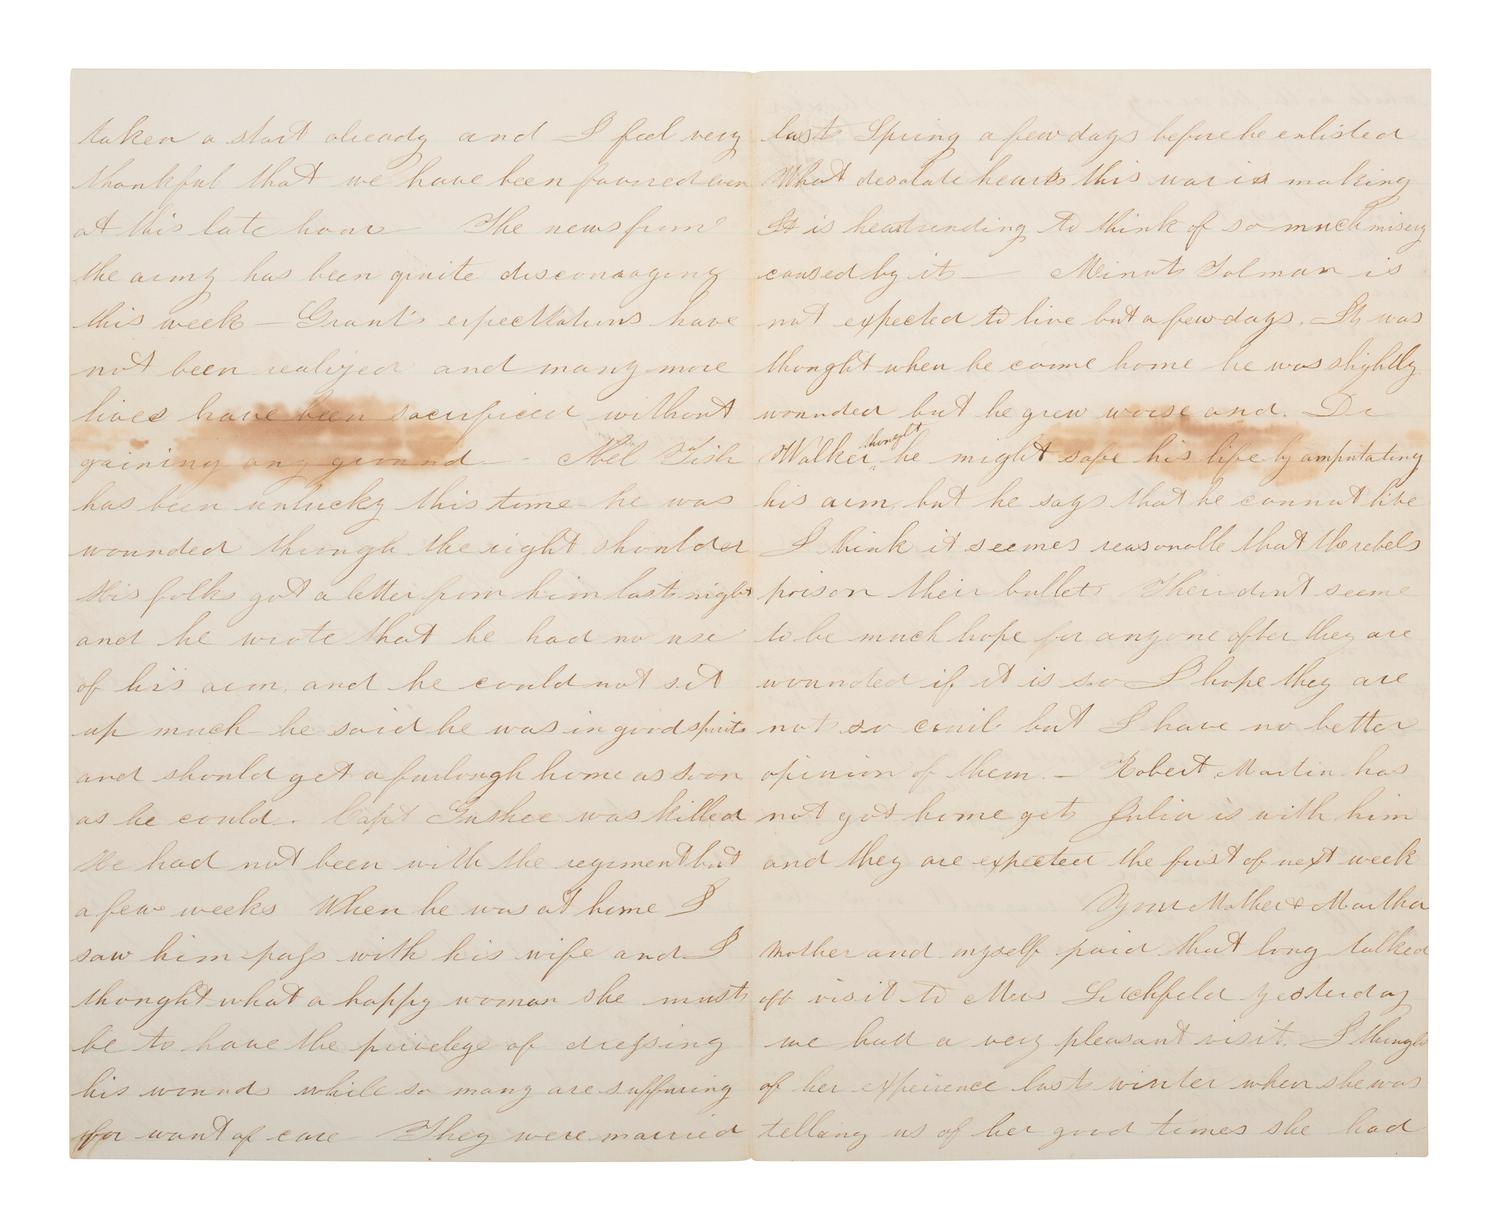 taken a start already and I feel very
thankful that we have been favored even
at this late hour The news from
the army has been quite discouraging
this week — Grant's expectations have
not been realized and many more
lives have been sacrificed without
gaining any ground — Abel Fish
has been unlucky this time he was
wounded through the right shoulder
His folks got a letter from him last night
and he wrote that he had no use
of his arm, and he could not sit
up much he said he was in good spirits
and should get a furlough home as soon
as he could. Capt Gushee was killed
He had not been with the regiment but
a few weeks When he was at home I
saw him pass with his wife and I
thought what a happy woman she must
be to have the privelege of dressing
his wounds while so many are suffering
for want of care They were married
last Spring a few days before he enlisted
What desolate hearts this war is making
It is heartrending to think of so much misery
caused by it — Minot Tolman is
not expected to live but a few days. It was
thought when he came home he was slightly
wounded but he grew worse and. Dr
Walker thought he might safe his life by amputating
his arm, but he says that he cannot live
I think it seemes reasonable that the rebels
poison their bullets Their dont seeme
to be much hope for anyone after they are
wounded if it is so I hope they are
not so cruil but I have no better
opinion of them. — Robert Martin has
not got home yet Julia is with him
and they are expected the first of next week
Your Mother & Martha
Mother and myself paid that long talked
off visit to Mrs Litchfield yesterday
we had a very pleasant visit. I thought
of her experience last winter when she was
telling us of her good times she had